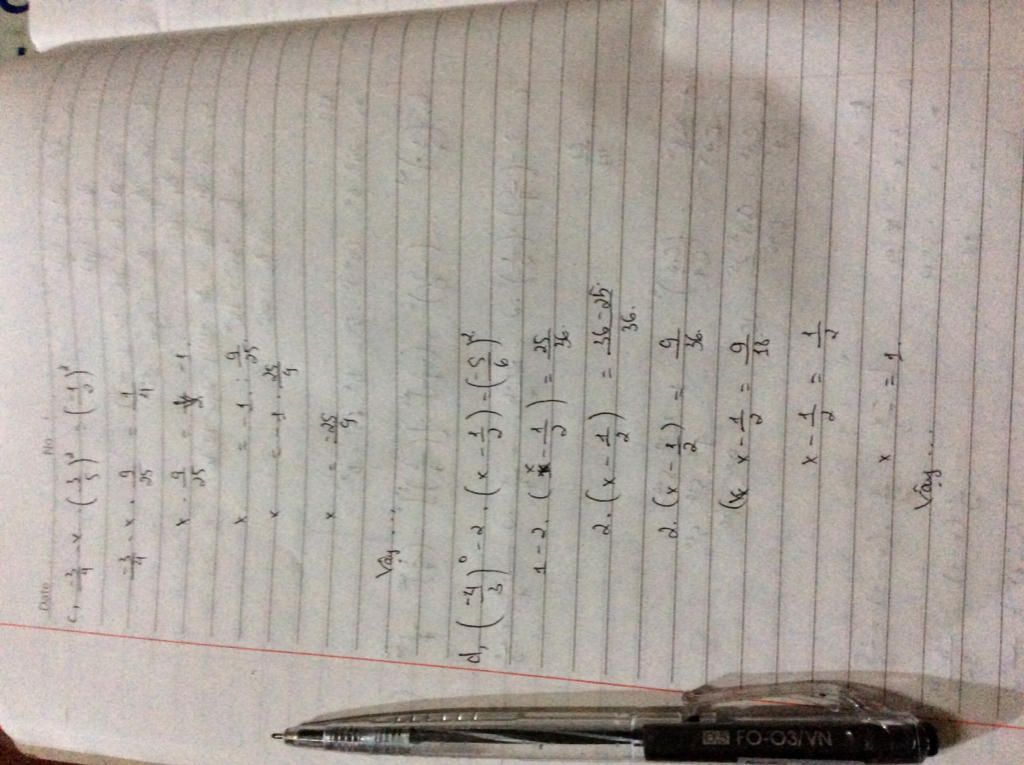 Date No
c, -3/4 - x . (3/5)² = (1/2)²
-3/4 - x . 9/25 = 1/4
x . 9/25 = -1
x = -1 : 9/25
x = -1 . 25/9
x = -25/9
Vậy ...
d, (-4/3)⁰ - 2 . (x - 1/2) = (5/6)²
1 - 2 . (x - 1/2) = 25/36
2 . (x - 1/2) = 36 - 25/36
2 . (x - 1/2) = 9/36
x - 1/2 = 9/18
x - 1/2 = 1/2
x = 1
Vậy ...
FO-03/VN